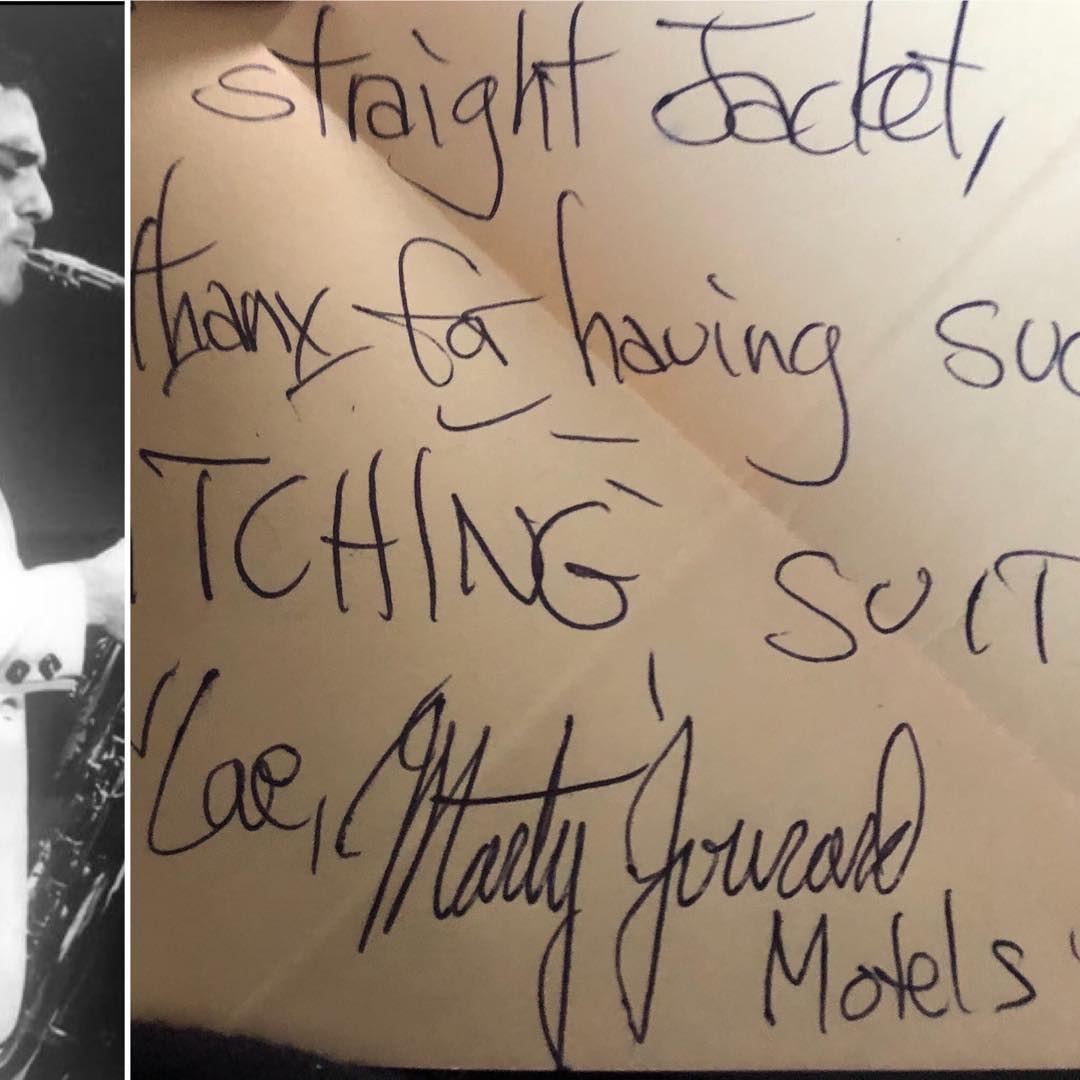 straight Jacket,
thanx for having suc
TCHING SUIT
Marty Jourard
Motels